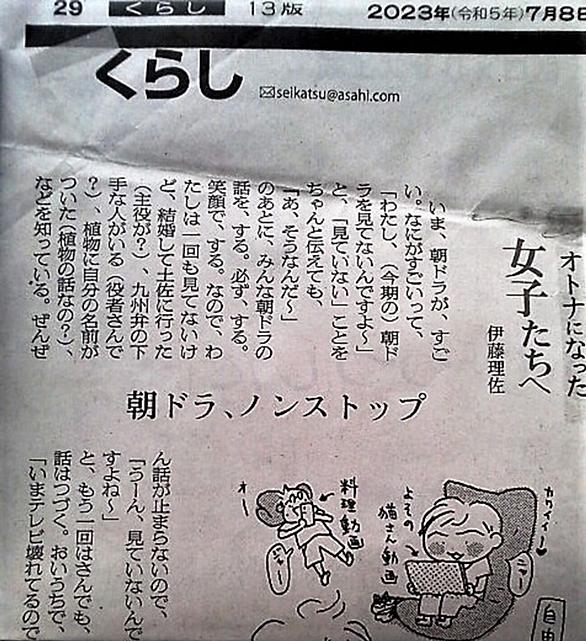 29 くらし 13版 2023年(令和5年)7月8日
くらし
✉seikatsu@asahi.com
オトナになった
女子たちへ
伊藤理佐
いま、朝ドラが、すご
い。なにがすごいって、
「わたし、(今期の)朝ド
ラを見てないんですよ〜」
と、「見ていない」ことを
ちゃんと伝えても、
「あ、そうなんだ〜」
のあとに、みんな朝ドラの
話を、する。必ず、する。
笑顔で、する。なので、わ
たしは一回も見てないけ
ど、結婚して土佐に行った
(主役が?)、九州弁の下
手な人がいる(役者さんで
?)、植物に自分の名前が
ついた(植物の話なの?)、
などを知っている。ぜんぜ
朝ドラ、ノンストップ
ん話が止まらないので、
「うーん、見ていないんで
すよね〜」
と、もう一回はさんでも、
話はつづく。おいうちで、
「いまテレビ壊れてるので
カワイイー♥
ニャー
よその
猫さん動画
料理動画
オー
ジャー
自由